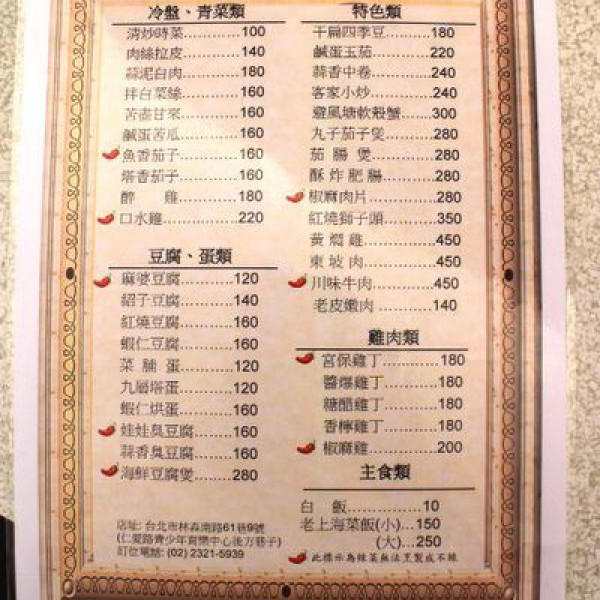 冷盤、青菜類
清炒時菜............100
肉絲拉皮............140
蒜泥白肉............180
拌白菜絲............160
苦盡甘來............160
鹹蛋苦瓜............160
魚香茄子............160
塔香茄子............160
醉 雞............180
口水雞............220
豆腐、蛋類
麻婆豆腐.........120
紹子豆腐.........140
紅燒豆腐.........160
蝦仁豆腐.........160
菜 脯 蛋.........120
九層塔蛋.........120
蝦仁烘蛋.........160
娃娃臭豆腐.......160
蒜香臭豆腐.......160
海鮮豆腐煲.......280
店址: 台北市林森南路61巷9號
(仁愛路青少年育樂中心後方巷子)
訂位電話: (02) 2321-5939
特色類
干扁四季豆.........180
鹹蛋玉茄............220
蒜香中卷............240
客家小炒............240
避風塘軟殼蟹.......300
丸子茄子煲.........280
茄 腸 煲............280
酥 炸 肥 腸.........280
椒麻肉片............280
紅燒獅子頭.........350
黃 燜 雞............450
東 坡 肉............450
川味牛肉............450
老皮嫩肉 ............140
雞肉類
宮保雞丁...........180
醬爆雞丁...........180
糖醋雞丁...........180
香檸雞丁...........180
椒麻雞............200
主食類
白 飯..............10
老上海菜飯(小)...150
(大)...250
此標示為辣菜無法烹製成不辣